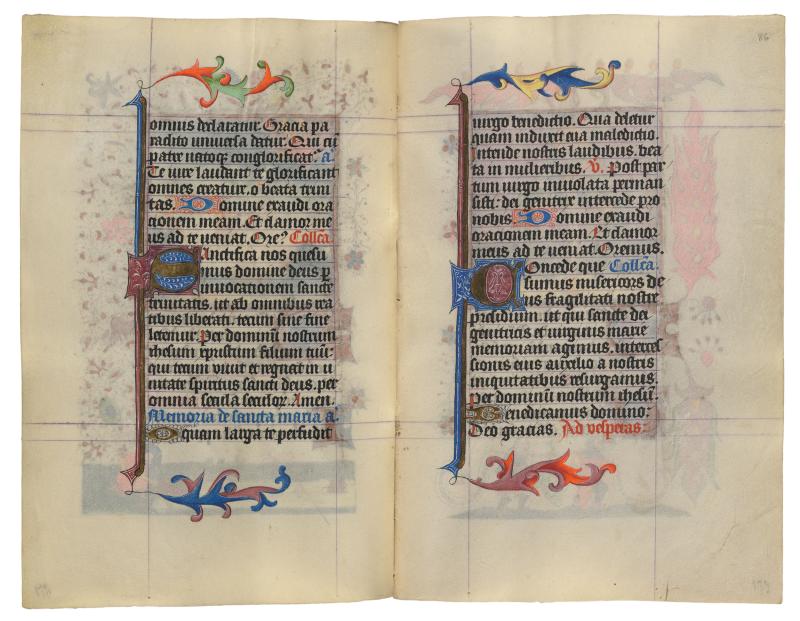 omnis declaratur. Gracia pa
radito universa datur. Qui cū
patre natoq; conglorificat͛. a͛
Te iure laudant te glorificant
omnes creatur. o beata trini
tas. Domine exaudi ora
cionem meam. Et clamor me
us ad te veniat. Ore͛? Collca
Sanctifica nos quesu
mus domine deus p
invocationem sancte
trinitatis. ut ab omnibus rea
tibus liberati. tecum sine fine
letemur. Per dominū nostrum
ihesum xpristum filium tuū:
qui tecum vivit et regnat in u
nitate spiritus sancti deus. per
omnia secula seculor. Amen.
Memoria de sancta maria a͛.
O quam larga te perfudit
86
virgo benedictio. Qua deletur
quam induxit eua maledictio.
Intende nostris laudibus. bea
ta in mulieribus. V. Post par
tum virgo inviolata perman
sisti: dei genitrix intercede pro
nobis. Domine exaudi
oracionem meam. Et clamor
meus ad te veniat. Oremus.
Concede que Collcā.
sumus misericors de
us fragilitati nostre
presidium. ut qui sancte dei
genitricis et virginis marie
memoriam agimus. interces
sionis eius auxilio a nostris
iniquitatibus resurgamus.
Per dominū nostrum ihesū.
Benedicamus domino:
Deo gracias. Ad vesperas: